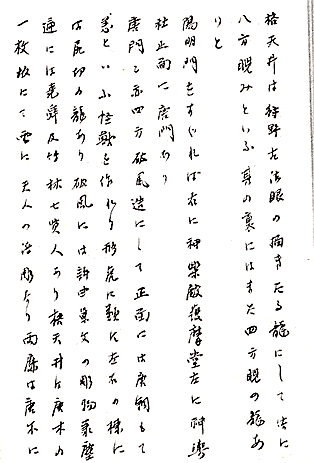 格天井は狩野左法眼の描きたる龍にして俗に
八方睨みといふ其の裏にはまた四方睨の龍あ
りと
陽明門をすぐれば右に神楽殿護摩堂左に神輿
社正面に唐門あり
唐門と亦四方破風造にして正面には唐銅もて
恙といふ怪獣を作れり形虎に類に左右の棟に
は尾切の龍あり破風には許由巣父の彫物裏壁
遍には堯舜及竹林七賢人あり格天井は唐木の
一枚板にて雲に天人の浮彫なり両扉は唐木に